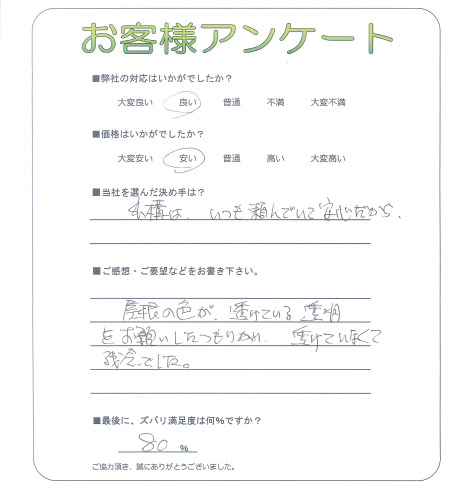 お客様アンケート
■弊社の対応はいかがでしたか？
大変良い 良い 普通 不満 大変不満
■価格はいかがでしたか？
大変安い 安い 普通 高い 大変高い
■当社を選んだ決め手は？
は、いつも頼んでいて安心だから、
■ご感想・ご要望などをお書き下さい。
屋根の色が、透けている透明
をお願いしたつもりが、透けていなくて
残念でした。
■最後に、ズバリ満足度は何%ですか？
80 %
ご協力頂き、誠にありがとうございました。